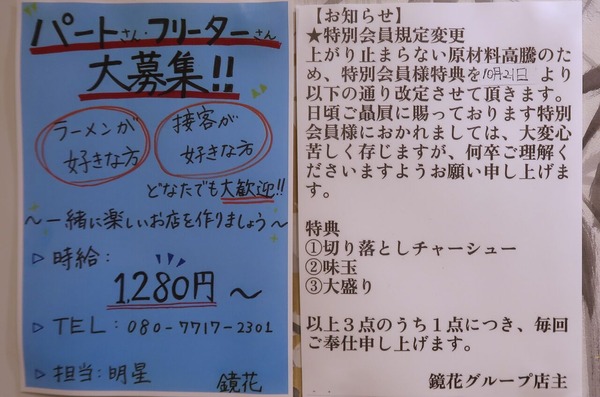 パートさん・フリーターさん
大募集!!
ラーメンが
好きな方
接客が
好きな方
どなたでも大歓迎!!
〜一緒に楽しいお店を作りましょう〜
▷時給:
1,280円〜
▷TEL:080-7717-2301
▷担当:明星
鏡花
【お知らせ】
★特別会員規定変更
上がり止まらない原材料高騰のた
め、特別会員様特典を10月21日より
以下の通り改定させて頂きます。
日頃ご贔屓に賜っております特別
会員様におかれましては、大変心
苦しく存じますが、何卒ご理解く
ださいますようお願い申し上げま
す。
特典
①切り落としチャーシュー
②味玉
③大盛り
以上３点のうち１点につき、毎回
ご奉仕申し上げます。
鏡花グループ店主